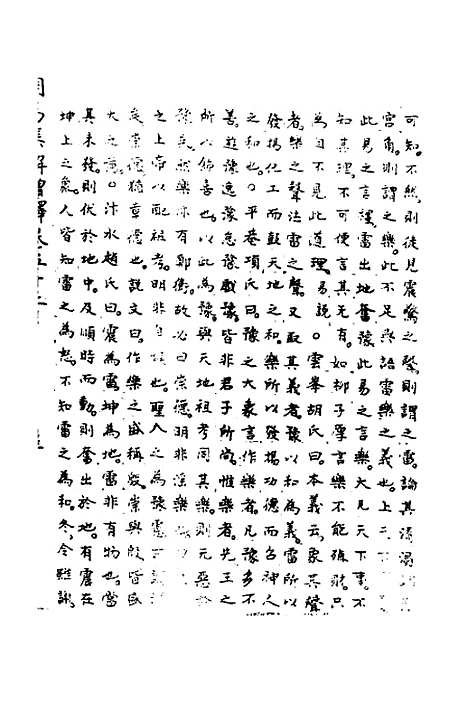 可知。不然。則徒見震驚之聲。則謂之雷。論其清濁
宮角。則謂之樂。此不足與語樂之義也。上
此易之言謹。雷出地奮豫。此易之言樂。大凡天下事。不
知其理。不可便言其無有。如柳子厚言樂不能移風。只
為自不見此道理。易說。○雲峯胡氏曰。本義云。象其聲
者。樂之聲法雷之聲。又取其義者。豫以和為義。雷所以
發揚化工而鼓天地之和。樂所以發揚功德而召神人
之和也。○平菴項氏曰。豫之大象言作樂者。凡豫多不
善。遊豫逸豫怠豫戲豫。皆非君子所尚。惟樂者。先王之
所以飾喜也。以此為豫。與天地祖考同其樂。則元惡
豫矣。然樂亦有鄭衛。故必曰崇德。明非淫樂
之上帝以配祖考。明非自也。聖人之為豫
矣。崇德猶章德也。說文曰。作樂之盛稱殷。崇與殷皆
大之意。○汴水趙氏曰。震為雷。坤為地。雷非有物也。當
其未發。則伏於地中。及順時而動。則奮出於地。有震在
坤上之象。人皆知雷之為怒。不知雷之為和。冬令雖謝。